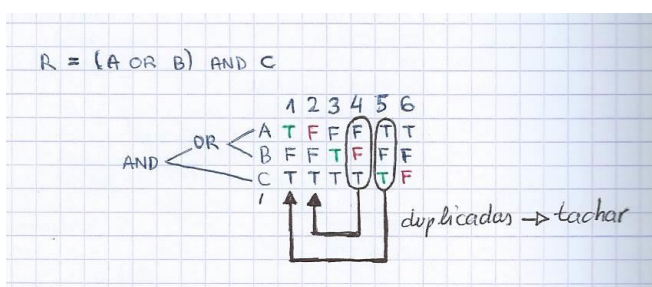 R = (A OR B) AND C
1 2 3 4 5 6
A T F F F T T
OR
B F F T F F F
AND
C T T T T T F
duplicadas → tachar